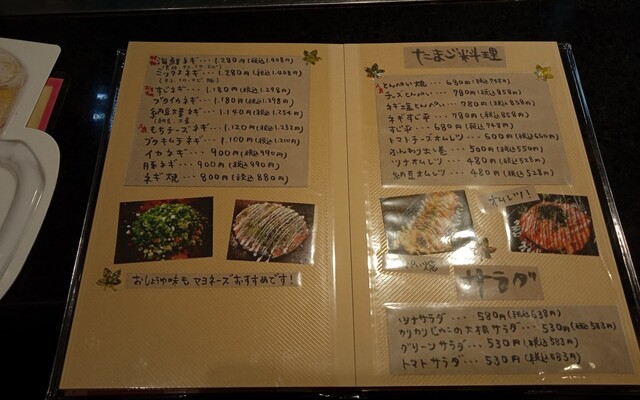 海鮮ネギ・・・1,280円(税込1,408円)
ミックスネギ・・・1,280円(税込1,408円)
すじネギ・・・1,180円(税込1,298円)
ブタイカネギ・・・1,180円(税込1,298円)
納豆ネギ・・・1,140円(税込1,254円)
もちチーズネギ・・・1,120円(税込1,232円)
ブタキムチネギ・・・1,100円(税込1,210円)
イカネギ・・・900円(税込990円)
豚ネギ・・・900円(税込990円)
ネギ焼・・・800円(税込880円)
おしょうゆ味も マヨネーズおすすめです!
たまご料理
とんぺい焼・・・680円(税込748円)
チーズとんぺい・・・780円(税込858円)
ネギ豆とんぺい・・・780円(税込858円)
ネギすじ平・・・780円(税込858円)
すじ平・・・680円(税込748円)
トマトチーズオムレツ・・・600円(税込660円)
ふんわり出し巻・・・500円(税込550円)
ツナオムレツ・・・480円(税込528円)
納豆オムレツ・・・480円(税込528円)
オムレツ!
焼
サラダ
ツナサラダ・・・580円(税込638円)
カリカリじゃこの大根サラダ・・・530円(税込583円)
グリーンサラダ・・・530円(税込583円)
トマトサラダ・・・530円(税込583円)